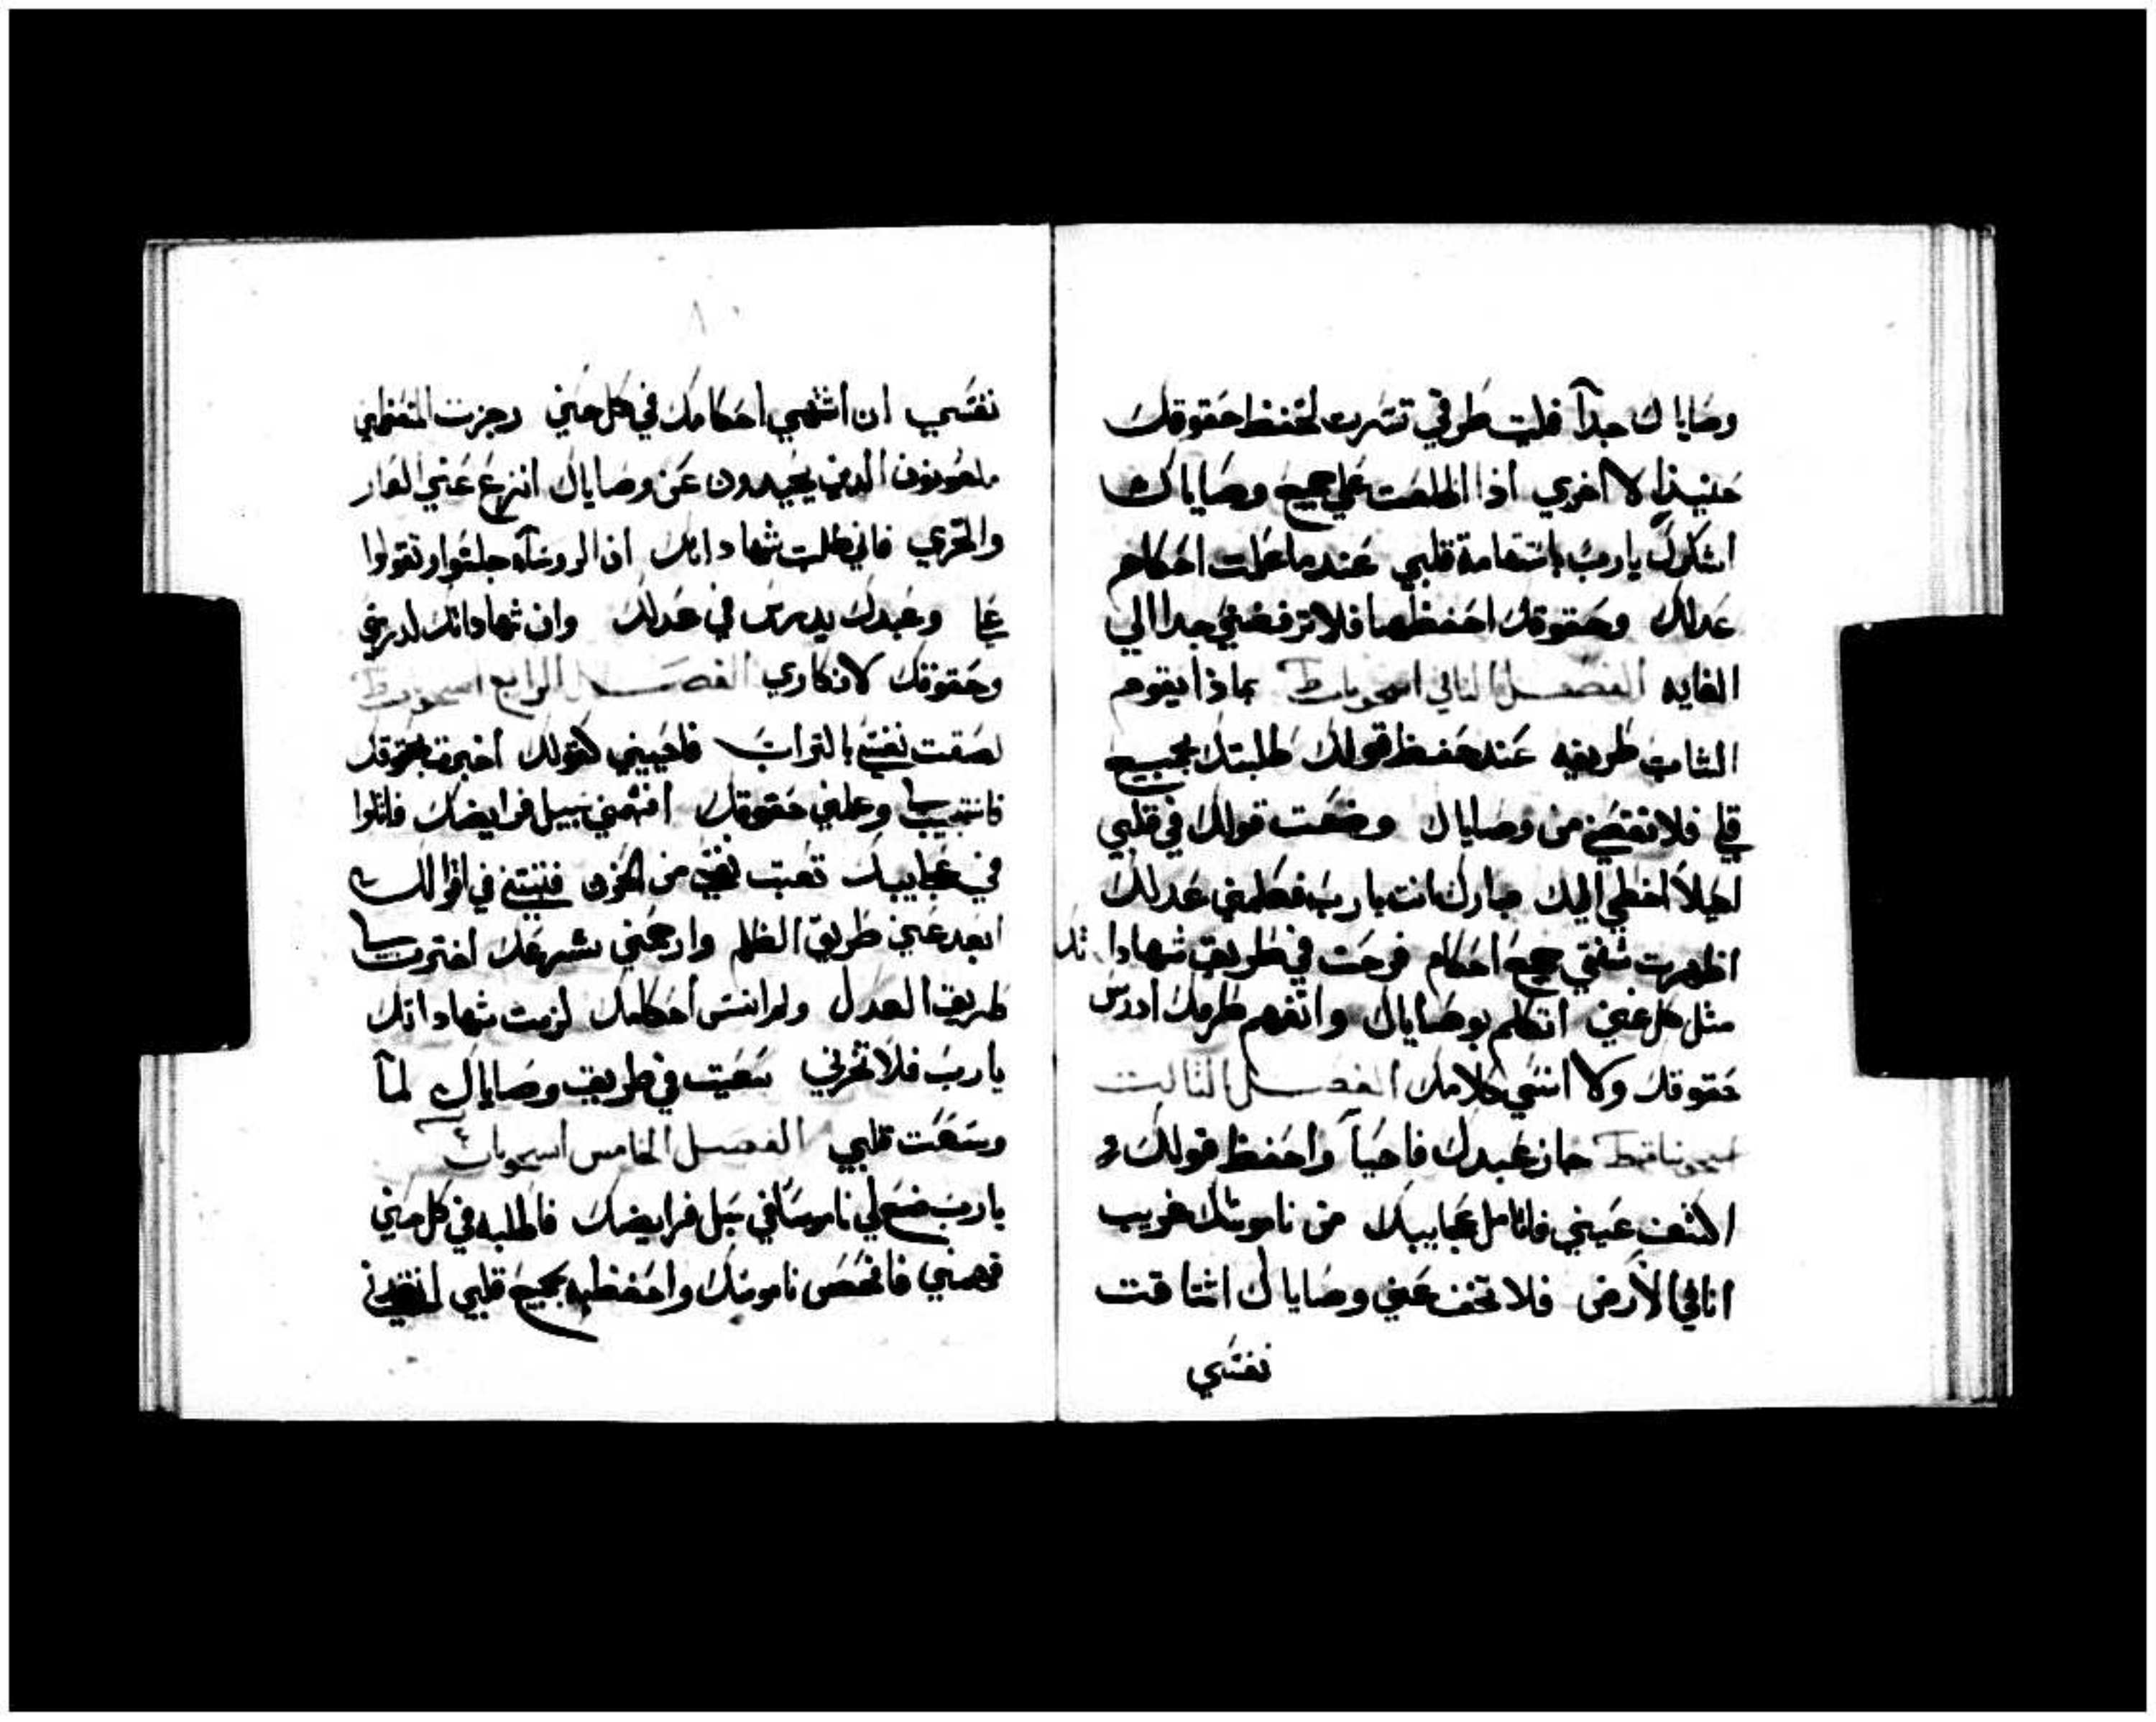 وصاياك جداً فليت طرقي تسهرت لتحفظ حقوقك
حينيذ لا اخزي اذا اطلعت علي جميع وصاياك
اشكرك يا رب باستقامة قلبي عندما علمت احكام
عدلك وحقوقك احفظها فلا ترفضني جدا الي
الغايه الفصل الثاني اسحوبات بماذا يقوم
الشاب طريقه عند حفظ قولك طلبتك بجميع
قلبي فلا تقصني من وصاياك وضعت قولك في قلبي
لكيلا اخطي اليك مبارك انت يا رب فعلمني عدلك
اظهرت شفتي جميع احكام فرحت في طريق شهاداتك
مثل كل غني اتكلم بوصاياك واتفهم طرقك ادرس
حقوقك ولا انسي كلامك الفصل الثالت
جاز عبدك فاحيا واحفظ قولك
اكشف عيني فاتامل عجايبك من ناموسك غريب
انا في الارض فلا تخف عني وصاياك اشتاقت
نفسي
نفسي ان اشتهي احكامك في كل حين زجرت المتعظمين
ملعونون الذين يحيدون عن وصاياك انزع عني العار
والخزي فاني طلبت شهاداتك ان الروساء جلسوا وتقولوا
علي وعبدك يدرس في عدلك وان شهاداتك لدرسي
وحقوقك لافكاري الفصل الرابع
لصقت نفسي بالتراب فاحييني كقولك اخبرت بحقوقك
فاستجيب لي وعلمني حقوقك افهمني سبيل فرايضك فاتلوا
في عجايبك تعبت نفسي من الحزن فثبتني في اقوالك
ابعد عني طريق الظلم وارحمني بشرعك اخترت
طريق العدل ولم انسي احكامك لزمت شهاداتك
يا رب فلا تخزني سعيت في طريق وصاياك لما
وسعت قلبي الفصل الخامس اسحوبات
يا رب ضع لي ناموسا في سبل فرايضك فاطلبه في كل حين
فهمني فافحص ناموسك واحفظه بجميع قلبي